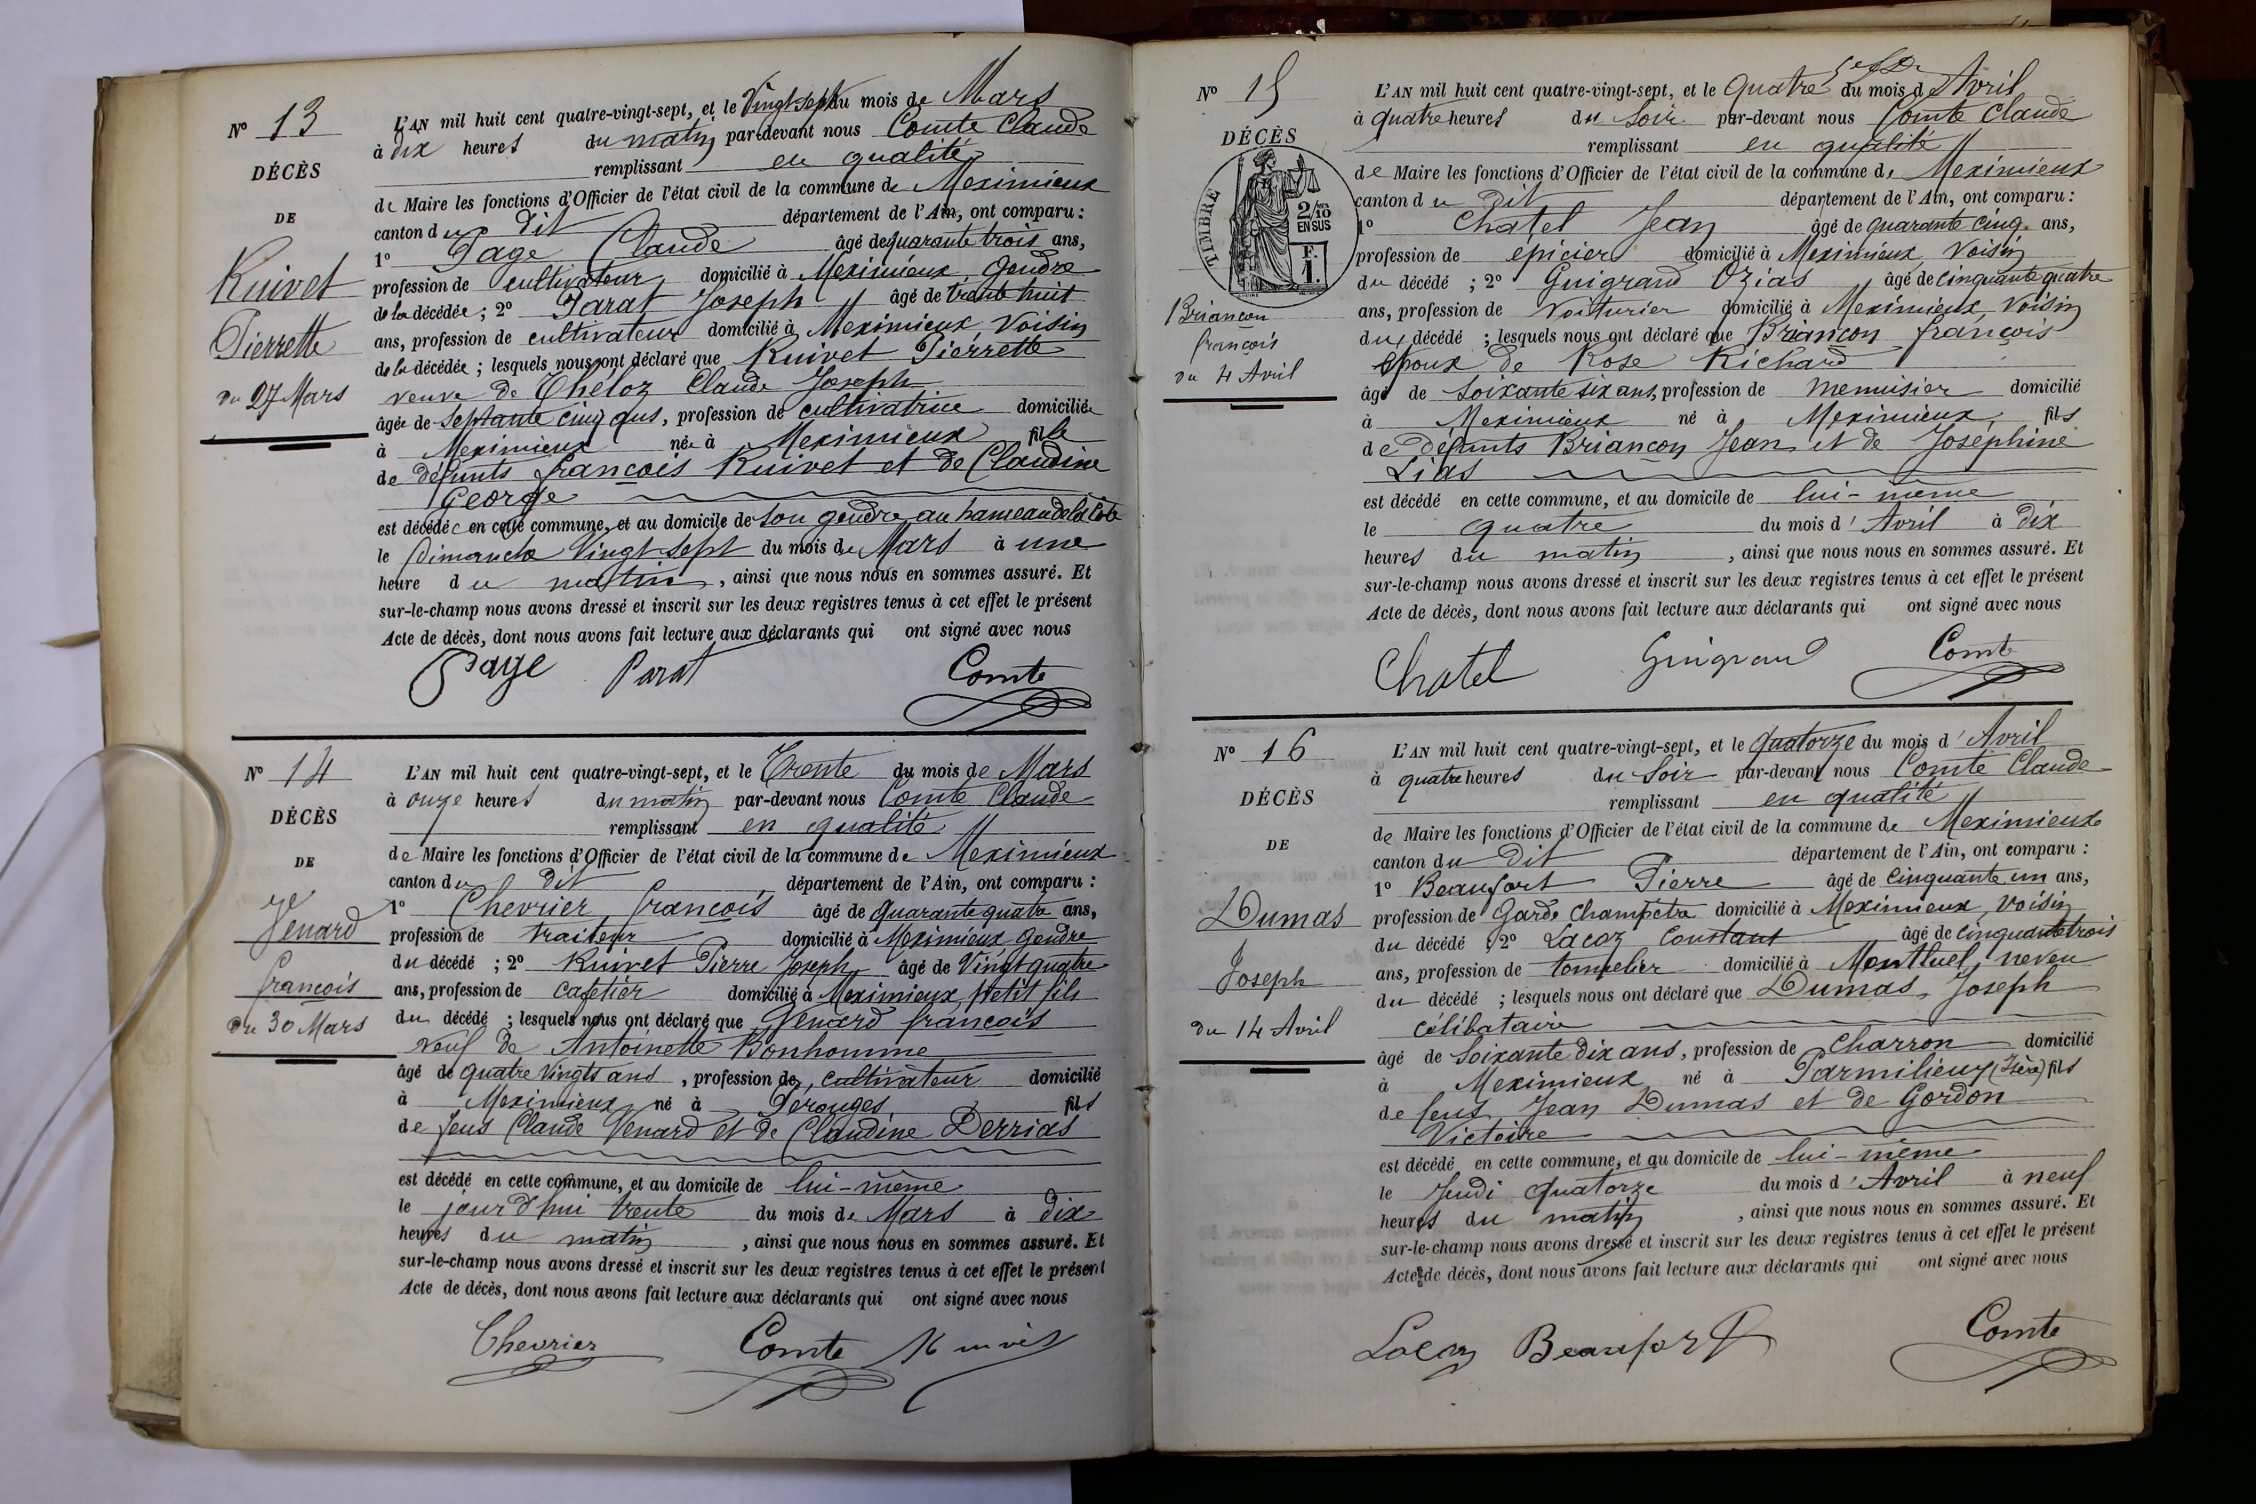 N° 13
DÉCÈS
DE
Ruivet
Pierrette
du 27 Mars
L'AN mil huit cent quatre-vingt-sept, et le Vingt sept du mois de Mars
à dix heures du matin par-devant nous Comte Claude
remplissant en qualité
de Maire les fonctions d'Officier de l'état civil de la commune de Meximieux
canton du dit département de l'Ain, ont comparu :
1° Page Claude âgé de quarante trois ans,
profession de cultivateur domicilié à Meximieux, Gendre
de la décédée ; 2° Parat Joseph âgé de trente huit
ans, profession de cultivateur domicilié à Meximieux, Voisin
de la décédée ; lesquels nous ont déclaré que Ruivet Pierrette
veuve de Theloz Claude Joseph
âgée de septante cinq ans, profession de cultivatrice domiciliée
à Meximieux née à Meximieux fille
de défunts François Ruivet et de Claudine
George
est décédée en cette commune, et au domicile de son gendre au hameau de la Côte
le dimanche Vingt sept du mois de Mars à une
heure du matin, ainsi que nous nous en sommes assuré. Et
sur-le-champ nous avons dressé et inscrit sur les deux registres tenus à cet effet le présent
Acte de décès, dont nous avons fait lecture aux déclarants qui ont signé avec nous
Page Parat Comte
N° 14
DÉCÈS
DE
Venard
François
du 30 Mars
L'AN mil huit cent quatre-vingt-sept, et le Trente du mois de Mars
à onze heures du matin par-devant nous Comte Claude
remplissant en qualité
de Maire les fonctions d'Officier de l'état civil de la commune de Meximieux
canton du dit département de l'Ain, ont comparu :
1° Chevrier François âgé de quarante quatre ans,
profession de traiteur domicilié à Meximieux, gendre
du décédé ; 2° Ruivet Pierre Joseph âgé de Vingt quatre
ans, profession de cafetier domicilié à Meximieux, petit fils
du décédé ; lesquels nous ont déclaré que Venard François
veuf de Antoinette Bonhomme
âgé de quatre Vingts ans, profession de cultivateur domicilié
à Meximieux né à Perouges fils
de feus Claude Venard et de Claudine Derrias
est décédé en cette commune, et au domicile de lui-même
le jour d'hui trente du mois de Mars à dix
heures du matin, ainsi que nous nous en sommes assuré. Et
sur-le-champ nous avons dressé et inscrit sur les deux registres tenus à cet effet le présent
Acte de décès, dont nous avons fait lecture aux déclarants qui ont signé avec nous
Chevrier Comte Ruivet
N° 15
DÉCÈS
TIMBRE
2/10
EN SUS
F.
1.
Briancon
François
du 4 Avril
L'AN mil huit cent quatre-vingt-sept, et le quatre du mois d'Avril
à quatre heures du soir par-devant nous Comte Claude
remplissant en qualité
de Maire les fonctions d'Officier de l'état civil de la commune de Meximieux
canton du dit département de l'Ain, ont comparu :
1° Chatel Jean âgé de quarante cinq ans,
profession de épicier domicilié à Meximieux, Voisin
du décédé ; 2° Guigrand Ozias âgé de cinquante quatre
ans, profession de Voiturier domicilié à Meximieux, Voisin
du décédé ; lesquels nous ont déclaré que Briançon françois
époux de Rose Richard
âgé de soixante six ans, profession de menuisier domicilié
à Meximieux né à Meximieux, fils
de défunts Briançon Jean et de Joséphine
Lias
est décédé en cette commune, et au domicile de lui-même
le quatre du mois d'Avril à dix
heures du matin, ainsi que nous nous en sommes assuré. Et
sur-le-champ nous avons dressé et inscrit sur les deux registres tenus à cet effet le présent
Acte de décès, dont nous avons fait lecture aux déclarants qui ont signé avec nous
Chatel Guigrand Comte
N° 16
DÉCÈS
DE
Dumas
Joseph
du 14 Avril
L'AN mil huit cent quatre-vingt-sept, et le quatorze du mois d'Avril
à quatre heures du soir par-devant nous Comte Claude
remplissant en qualité
de Maire les fonctions d'Officier de l'état civil de la commune de Meximieux
canton du dit département de l'Ain, ont comparu :
1° Beaufort Pierre âgé de cinquante un ans,
profession de Garde Champêtre domicilié à Meximieux, voisin
du décédé ; 2° Lacoz Constant âgé de cinquante trois
ans, profession de tonnelier domicilié à Montluel, neveu
du décédé ; lesquels nous ont déclaré que Dumas, Joseph
célibataire
âgé de Soixante dix ans, profession de charron domicilié
à Meximieux né à Parmilieux (Isère) fils
de feus Jean Dumas et de Gordon
Victoire
est décédé en cette commune, et au domicile de lui-même
le Jeudi quatorze du mois d'Avril à neuf
heures du matin, ainsi que nous nous en sommes assuré. Et
sur-le-champ nous avons dressé et inscrit sur les deux registres tenus à cet effet le présent
Acte de décès, dont nous avons fait lecture aux déclarants qui ont signé avec nous
Lacoz Beaufort Comte